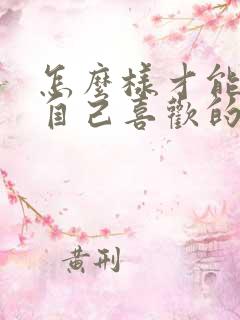 怎麼樣才能
自己喜歡的
黃刑